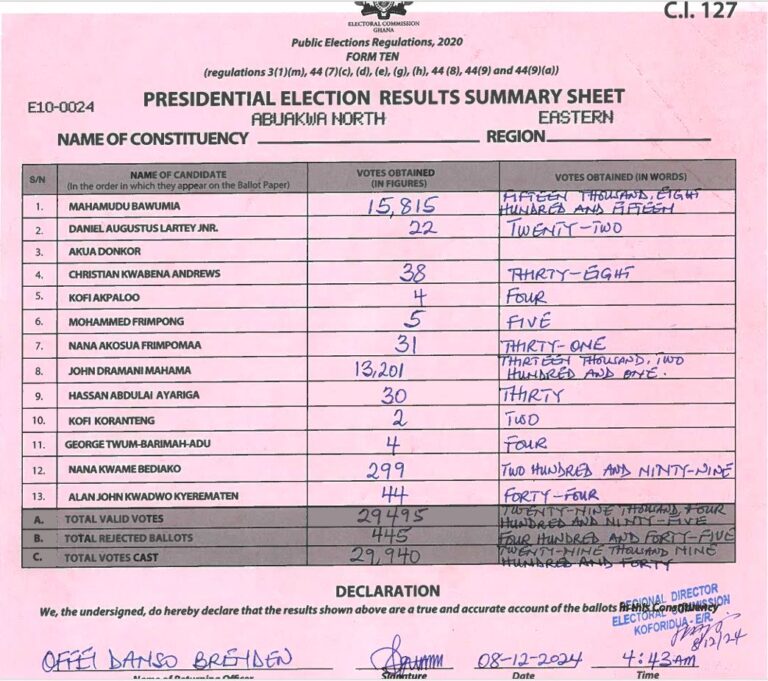 C.I. 127
ELECTORAL COMMISSION
GHANA
Public Elections Regulations, 2020
FORM TEN
(regulations 3(1)(m), 44 (7)(c), (d), (e), (g), (h), 44 (8), 44(9) and 44(9)(a))
E10-0024
PRESIDENTIAL ELECTION RESULTS SUMMARY SHEET
NAME OF CONSTITUENCY ABUAKWA NORTH REGION EASTERN
S/N NAME OF CANDIDATE (In the order in which they appear on the Ballot Paper) VOTES OBTAINED (IN FIGURES) VOTES OBTAINED (IN WORDS)
1. MAHAMUDU BAWUMIA 15,815 FIFTEEN THOUSAND, EIGHT HUNDRED AND FIFTEEN
2. DANIEL AUGUSTUS LARTEY JNR. 22 TWENTY-TWO
3. AKUA DONKOR
4. CHRISTIAN KWABENA ANDREWS 38 THIRTY-EIGHT
5. KOFI AKPALOO 4 FOUR
6. MOHAMMED FRIMPONG 5 FIVE
7. NANA AKOSUA FRIMPOMAA 31 THIRTY-ONE
8. JOHN DRAMANI MAHAMA 13,201 THIRTEEN THOUSAND, TWO HUNDRED AND ONE.
9. HASSAN ABDULAI AYARIGA 30 THIRTY
10. KOFI KORANTENG 2 TWO
11. GEORGE TWUM-BARIMAH-ADU 4 FOUR
12. NANA KWAME BEDIAKO 299 TWO HUNDRED AND NINTY-NINE
13. ALAN JOHN KWADWO KYEREMATEN 44 FORTY-FOUR
A. TOTAL VALID VOTES 29495 TWENTY-NINE THOUSAND, FOUR HUNDRED AND NINTY-FIVE
B. TOTAL REJECTED BALLOTS 445 FOUR HUNDRED AND FORTY-FIVE
C. TOTAL VOTES CAST 29,940 TWENTY-NINE THOUSAND NINE HUNDRED AND FORTY
DECLARATION
We, the undersigned, do hereby declare that the results shown above are a true and accurate account of the ballots in this Constituency
REGIONAL DIRECTOR
ELECTORAL COMMISSION
KOFORIDUA - E/R
8/12/24
OFFEI DANSO BRENDEN 08-12-2024 4:43AM
Name of Returning Officer Signature Date Time